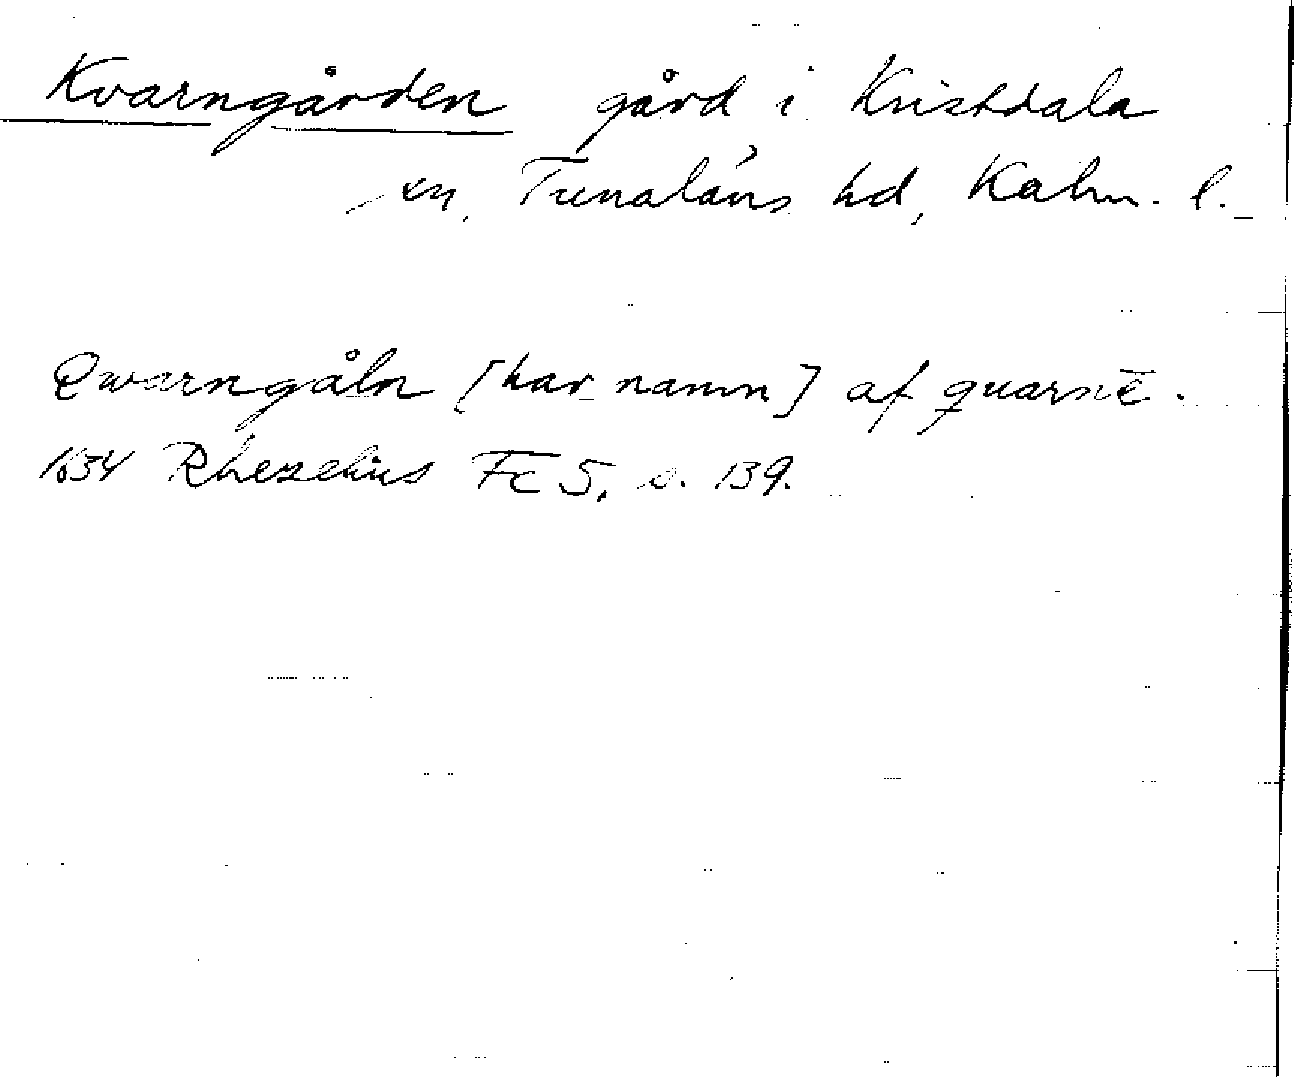 Kvarngården gård i Kristdala
sn, Tunaläns hd, Kalm. l.
Qwarngåln [har namn] af quarnē.
1634 Rhezelius Fc 5, s. 139.